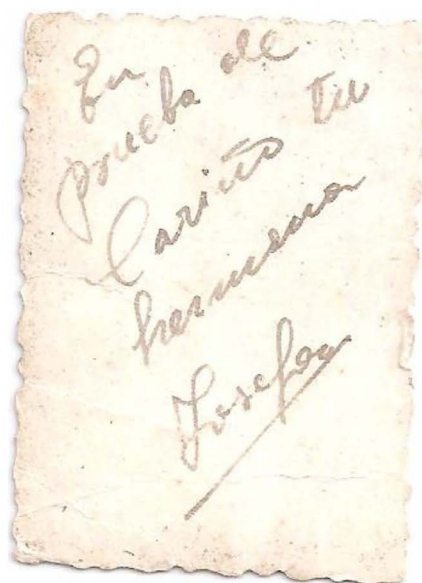 En
Prueba de
Cariño tu
hermana
Josefa